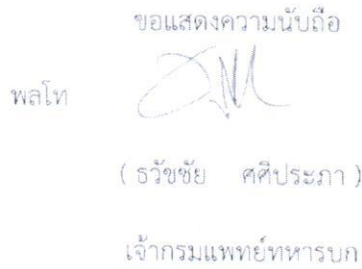 ขอแสดงความนับถือ
พลโท
( ธวัชชัย ศศิประภา )
เจ้ากรมแพทย์ทหารบก